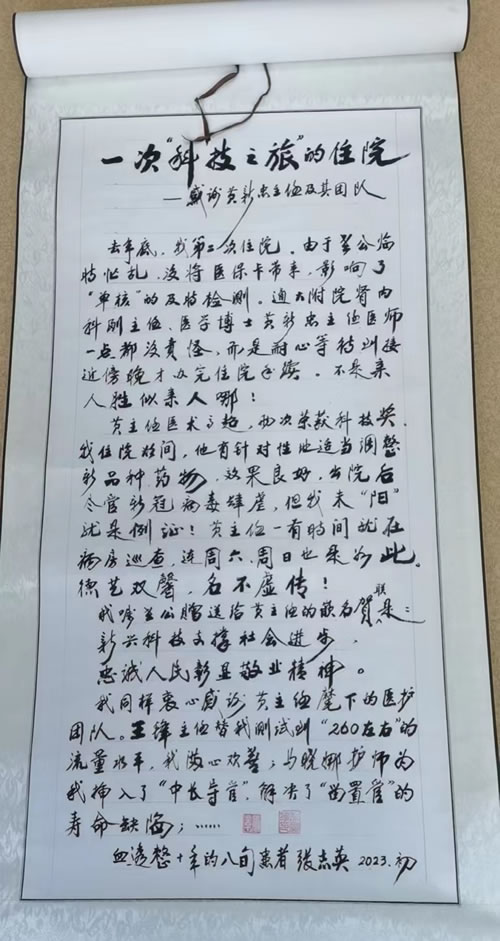 一次“科技之旅”的住院
——感谢黄新忠主任及其团队
去年底，我第二次住院。由于老公临
时忙乱，没将医保卡带来，影响了
“单核”的及时检测。通大附院肾内
科副主任、医学博士黄新忠主任医师
一点都没责怪，而是耐心等待到接
近傍晚才办完住院手续。不是亲
人胜似亲人哪！
黄主任医术高超，两次荣获科技奖。
我住院期间，他有针对性地适当调整
新品种药物，效果良好，出院后
尽管新冠病毒肆虐，但我未“阳”
就是例证！黄主任一有时间就在
病房巡查，连周六、周日也是如此。
德艺双馨，名不虚传！
我嘱老公赠送给黄主任的嵌名贺联是：
新兴科技支撑社会进步，
忠诚人民彰显敬业精神。
我同样衷心感谢黄主任麾下的医护
团队。王律主任替我测试到“260左右”的
流量水平，我满心欢喜；马晓娜护师为
我插入了“中长导管”，解决了“留置管”的
寿命缺陷；……
血透整十年的八旬患者 张志英 2023.初